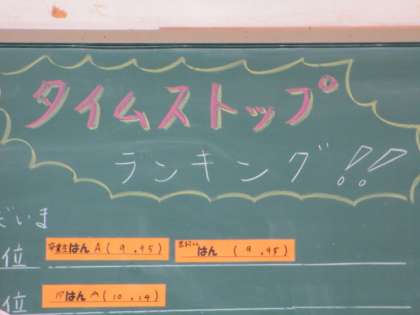 タイムストップ
ランキング!!
だいま
位 卒業生はんA(9.95) はん (9.95)
位 はん (10.14)